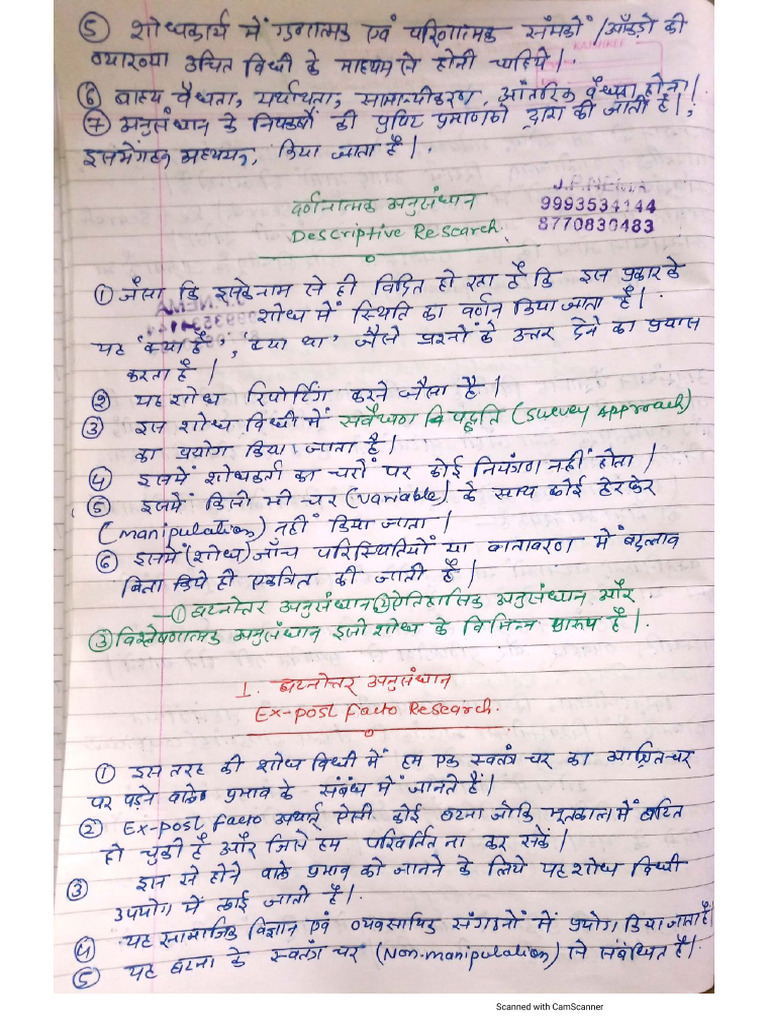 ⑤ शोधकार्य में गुणात्मक एवं परिणात्मक सांमकों/आँकड़ो की
व्याख्या उचित विधी के माध्यम से होनी चाहिये।
⑥ बाह्य वैधता, यर्थाथता, सामान्यीकरण, आंतरिक वैधता होना।
⑦ अनुसंधान के निष्कर्षों की पुष्टि प्रमाणों द्वारा की जाती है।,
इसमें गहन अध्ययन, किया जाता है।
J.P.NEMA
वर्णनात्मक अनुसंधान
9993534144
Descriptive Research.
8770830483
① जैसा कि इसके नाम से ही विदित हो रहा है कि इस प्रकार के
शोध में स्थिति का वर्णन किया जाता है।
यह 'क्या है', 'क्या था' जैसे प्रश्नों के उत्तर देने का प्रयास
करता है।
② यह शोध रिपोर्टिंग करने जैसा है।
③ इस शोध विधी में सर्वेक्षण वि पद्धति (Survey Approach)
का प्रयोग किया जाता है।
④ इसमें शोधकर्ता का चरों पर कोई नियंत्रण नहीं होता।
⑤ इसमें किसी भी चर (variable) के साथ कोई हेरफेर
(manipulation) नहीं किया जाता।
⑥ इसमें (शोध) जाँच परिस्थितियों या वातावरण में बदलाव
बिना किये ही एकत्रित की जाती है।
—① घटनोत्तर अनुसंधान ② ऐतिहासिक अनुसंधान और
③ विश्लेषणात्मक अनुसंधान इसी शोध के विभिन्न प्रारूप है।
1. घटनोत्तर अनुसंधान
Ex-post facto Research.
① इस तरह की शोध विधी में हम एक स्वतंत्र चर का आश्रित चर
पर पड़ने वाले प्रभाव के संबंध में जानते हैं।
② Ex-post facto अर्थात् ऐसी कोई घटना जोकि भूतकाल में घटित
हो चुकी है और जिसे हम परिवर्तित ना कर सकें।
③ इस से होने वाले प्रभाव को जानने के लिये यह शोध विधी
उपयोग में लाई जाती है।
④ यह सामाजिक विज्ञान एवं व्यवसायिक संगठनों में प्रयोग किया जाता है
⑤ यह घटना के स्वतंत्र चर (Non-manipulation) से संबंधित है।
Scanned with CamScanner